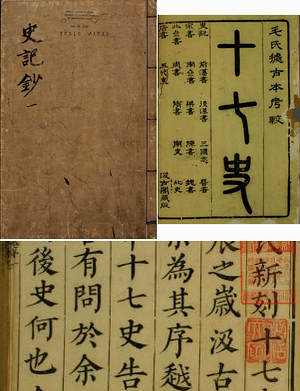 史記鈔
一
毛氏據古本考較
史記 前漢書 後漢書 三國志 晉書
宋書 南齊書 梁書 陳書 魏書
北齊書 周書 隋書 南史 北史
唐書 五代史
汲古閣藏版
十七史
氏新刻十七
辰之歲汲古
余為其序越
十七史告
有問於余
後史何也